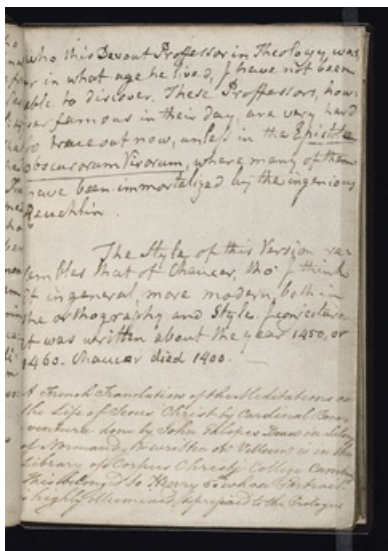 who this Devout Proffessor in Theology was,
or in what age he lived, I have not been
able to discover. These Proffessors, how-
ever famous in their day, are very hard
to trace out now, unless in the Epistolæ
obscurorum Virorum, where many of them
have been immortalized by the ingenious
Reuchlin.
The Style of this Version re-
sembles that of Chaucer, tho' I think
it in general, more modern, both in
the orthography and Style. I conjecture
it was written about the year 1450, or
1460. Chaucer died 1400.
A French Translation of the Meditations on
the Life of Jesus Christ by Cardinal Bona-
venture done by John Dean in
of Normandy & written on Vellum is in the
Library of Corpus Christi College Camb
This belong'd to Henry 5th whose Portrait
is highly illumined, & prefixed to the Prologue